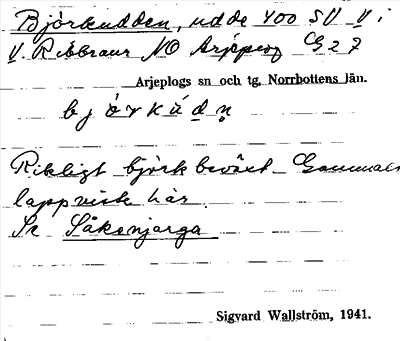 Björkudden, udde 400 SV V i
V. Ribbraur NO Arjeplog G 2 7
Arjeplogs sn och tg. Norrbottens län.
björkùdṇ
Rikligt björkbeväxt Gammal
lappviste här.
Se Såkonjarga
Sigvard Wallström, 1941.